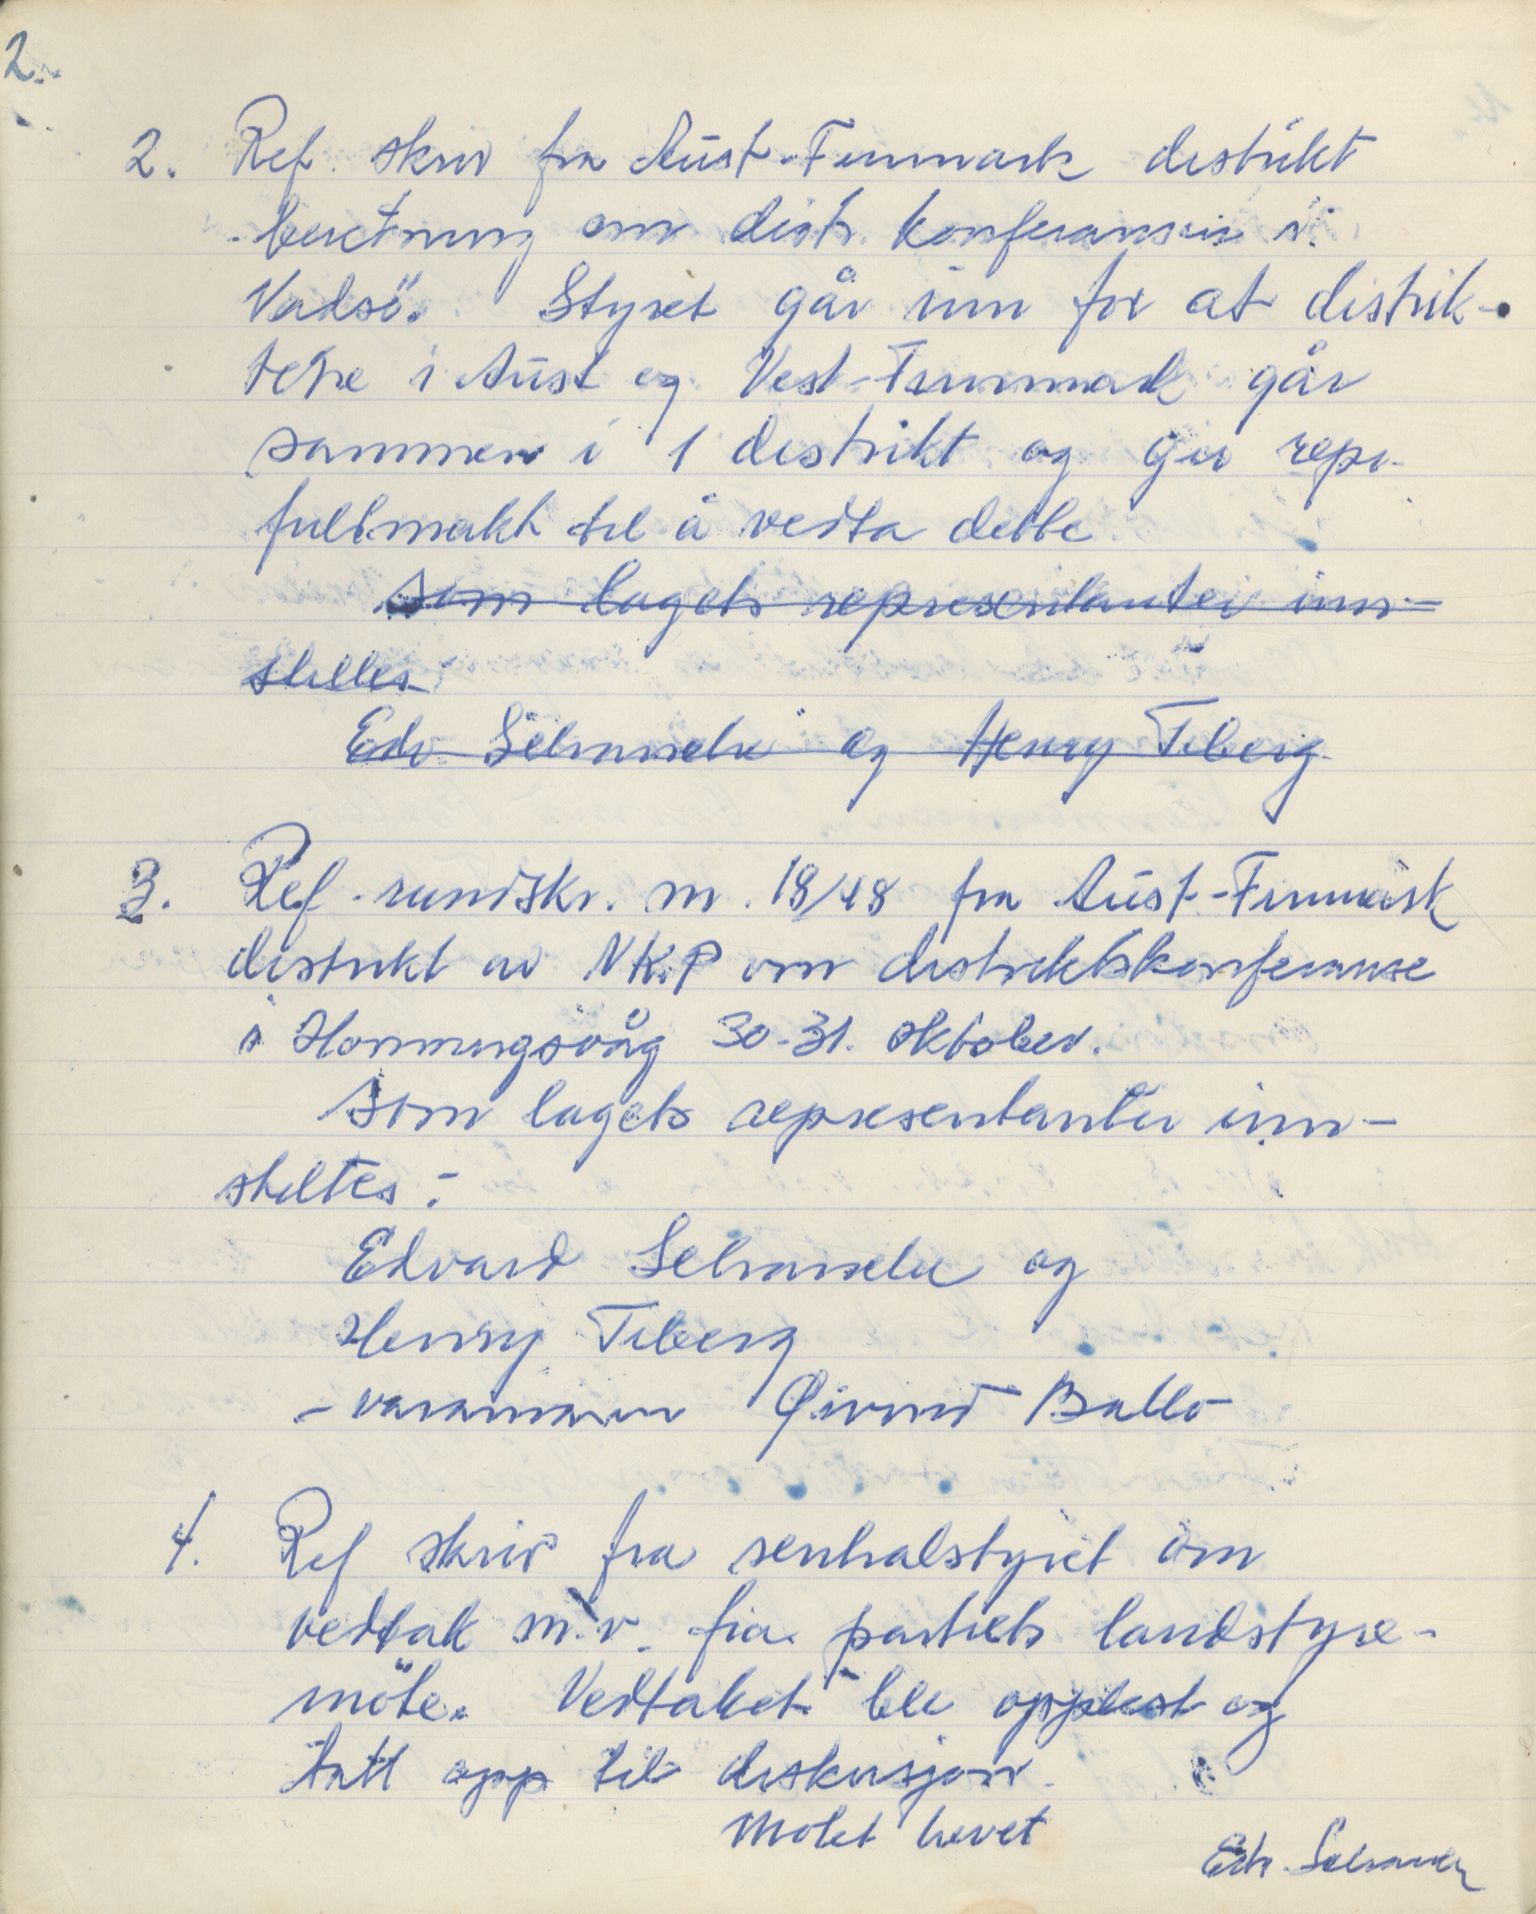 2.
2. Ref. skriv fra Aust-Finnmark distrikt
beretning om distr. konferansen i
Vadsö. Styret går inn for at distrik-
tene i Aust og Vest-Finnmark går
sammen i 1 distrikt og gir repr.
fullmakt til å vedta dette
Som lagets representanter inn-
stilles
Edv. og Henry Tiberg
3. Ref. rundskr. nr. 18/48 fra Aust-Finnmark
distrikt av NKP om distriktskonferanse
i Honningsvåg 30-31. oktober.
Som lagets representanter inn-
stiltes:-
Edvard og
Henry Tiberg
- varamann Øivind Ballo
4. Ref skriv fra sentralstyret om
vedtak m.v. fra partiets landstyre-
möte. Vedtaket ble opplest og
tatt opp til diskusjon.
Møtet hevet
Edv.